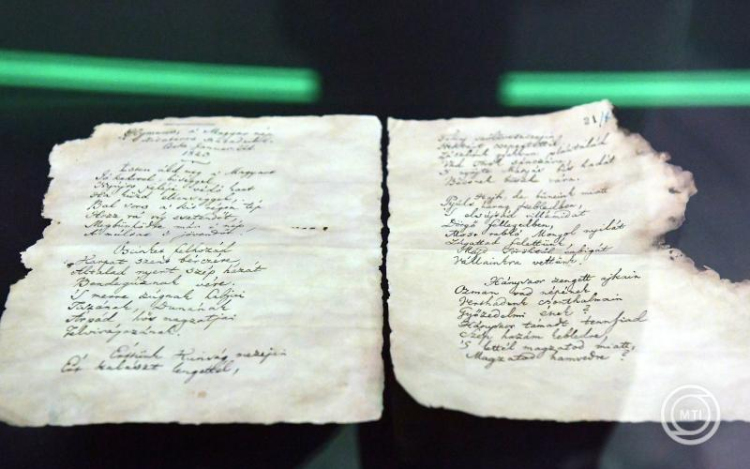 Hymnus, a Magyar nép
zivataros századaiból
Januar 22d
1823
Isten áldd meg a Magyart
Jó kedvvel, bőséggel,
Nyújts feléje védő kart
Ha küzd ellenséggel;
Bal sors a kit régen tép
Hozz rá víg esztendőt,
Megbünhödte már e nép
A multat s jövendőt.
Őseinket felhozád
Kárpát szent bérczére,
Általad nyert szép hazát
Bendegúznak vére
S merre zúgnak habjai
Tiszának, Dunának
Árpád hős magzatjai
Felvirágozának.
Értünk Kunság mezején
Ért kalászt lengettél,
21/4
Tokaj szőllővesszejin
Nektárt csepegtettél.
Zászlónk gyakran plántálád
Vad Török sánczára
S nyögte Mátyás bús hadát
Bécsnek büszke vára.
Hajh, de bűneink miatt
Gyúlt harag kebledben,
S elsújtád villámidat
Dörgő fellegedben,
Most rabló Mongol nyilát
Zúgattad felettünk,
Majd Töröktől rabigát
Vállainkra vettünk.
Hányszor zengett ajkain
Ozman vad népének
Vert hadunk csonthalmain
Győzedelmi ének?
Hányszor támadt tenfiad
Szép hazám kebledre,
S lettél magzatod miatt,
Magzatod hamvedre?
MTI